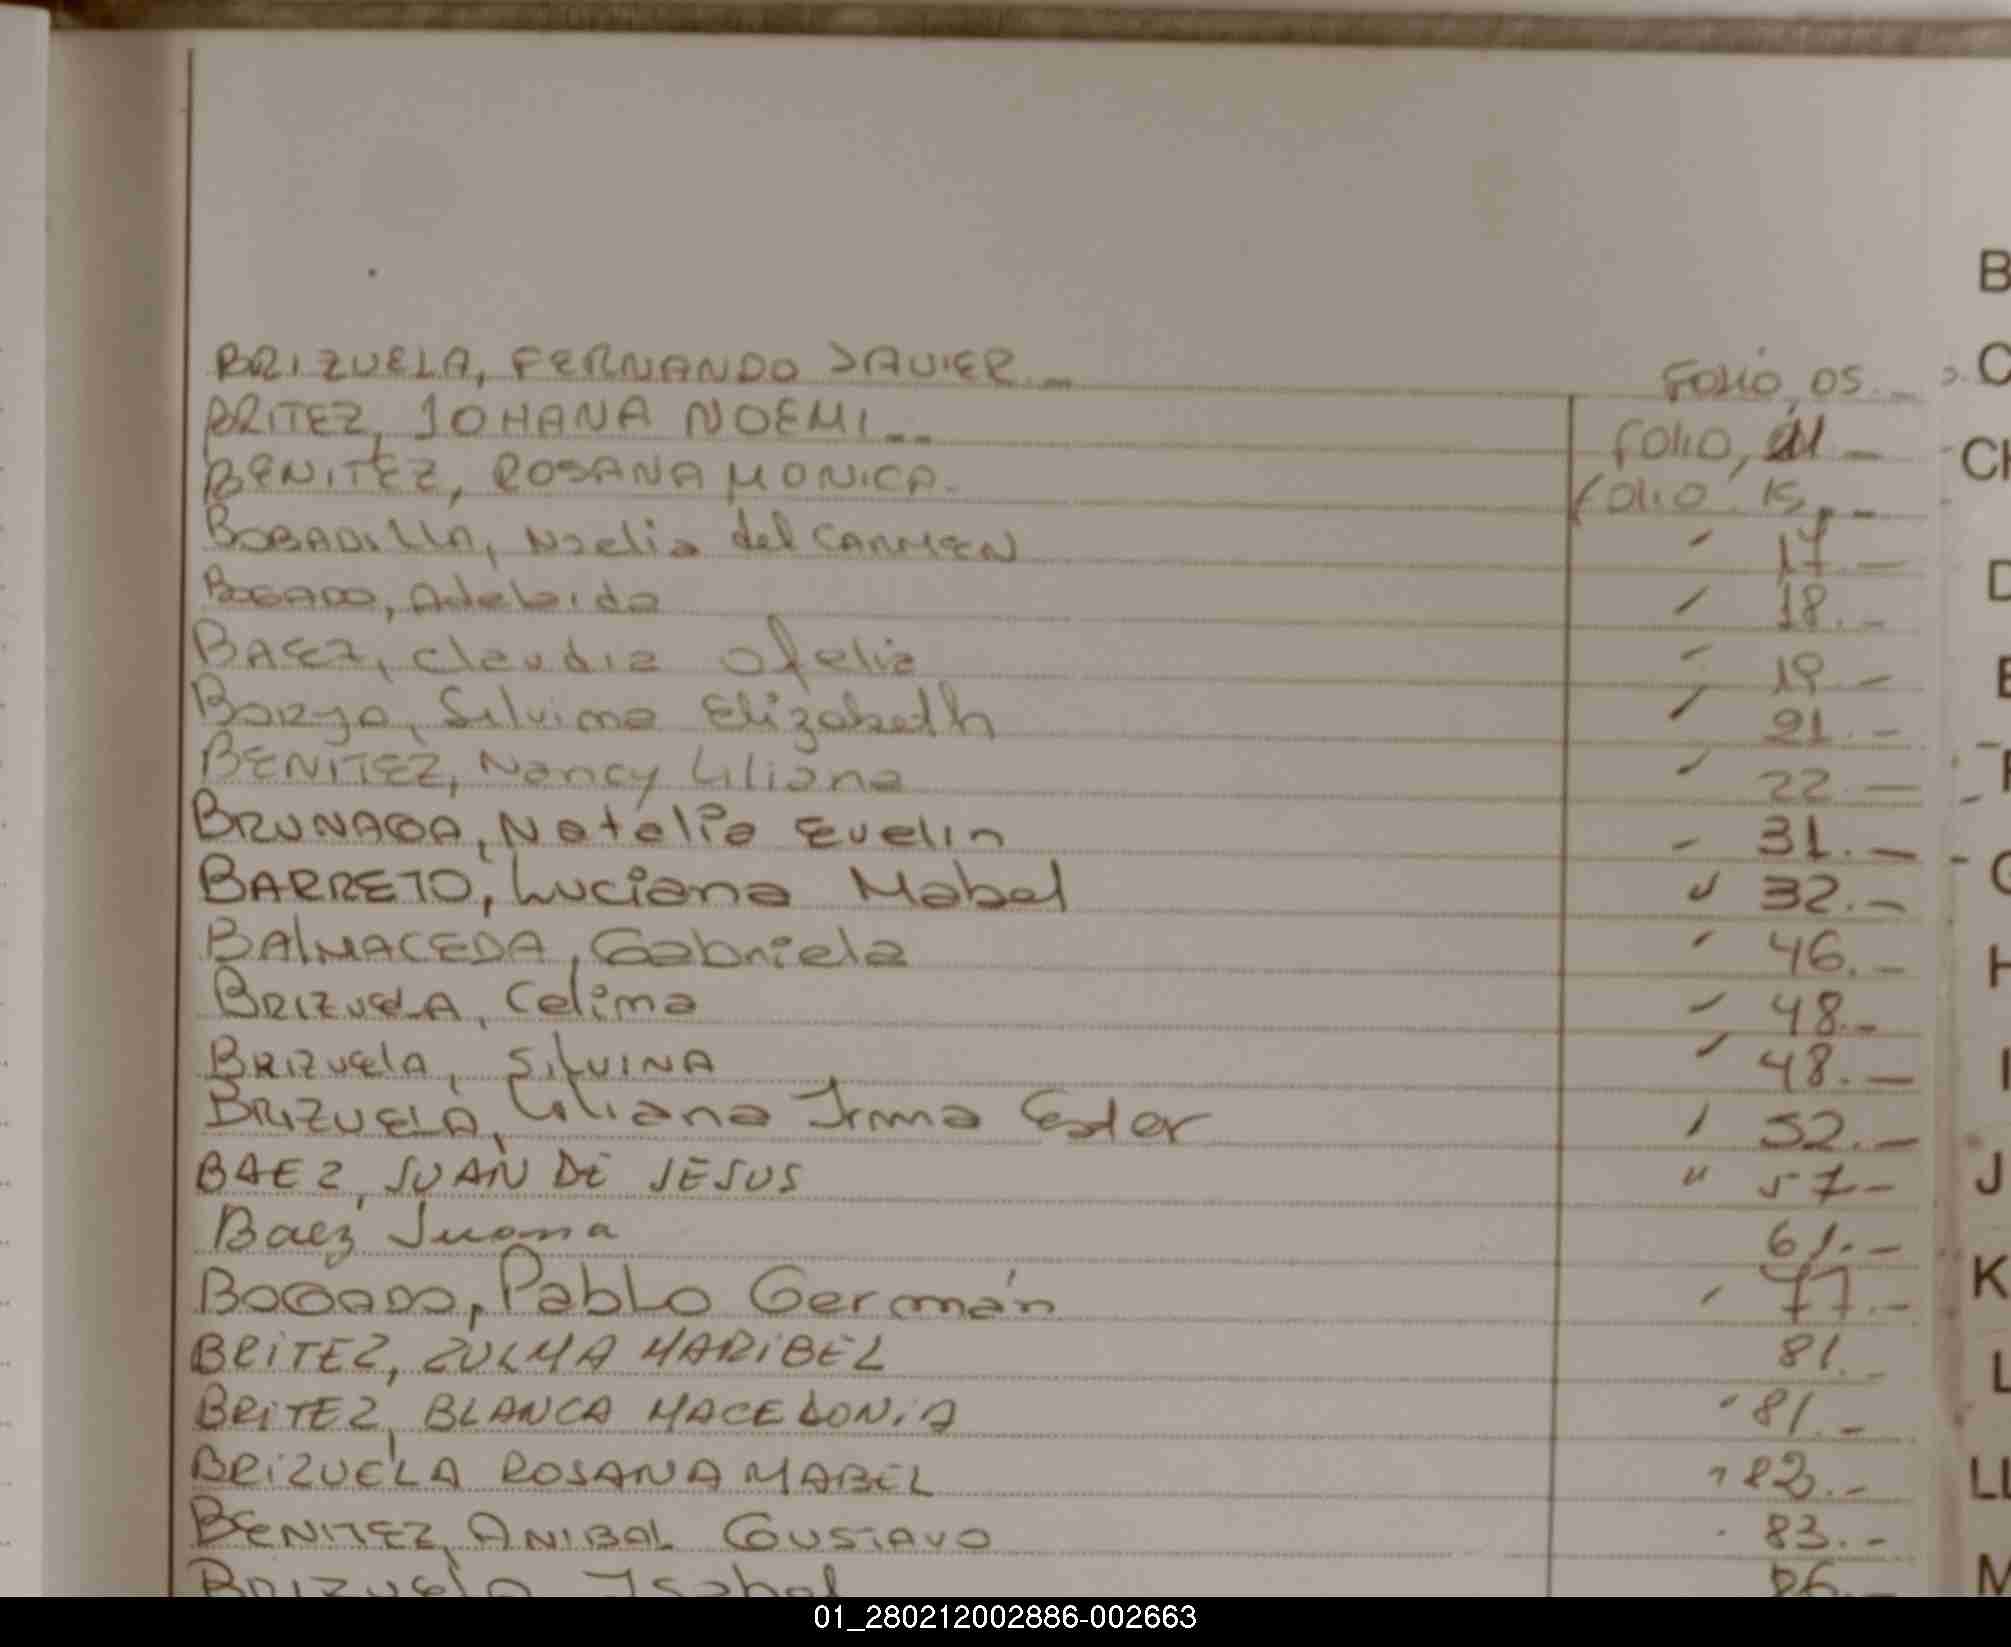 BRIZUELA, FERNANDO JAVIER.— FOLIO, 05.—
BRITEZ, JOHANA NOEMI.— FOLIO, 11 —
BENITEZ, ROSANA MONICA.- FOLIO 15.—
BOBADILLA, Noelia del CARMEN " 17 —
BOGADO, Adelaida " 18.—
BAEZ, Claudia Ofelia " 19 —
BORJA, Silvina Elizabeth " 21.—
BENITEZ, Nancy Liliana " 22.—
BRUNAGA, Natalia Evelin " 31.—
BARRETO, Luciana Mabel " 32.—
BALMACEDA, Gabriela " 46.—
BRIZUELA, Celina " 48.—
BRIZUELA, SILVINA " 48.—
BRIZUELA, Liliana Irma Ester " 52.—
BAEZ, JUAN DE JESUS " 57—
Baez Juana 61.—
BOGADO, Pablo Germán " 77.—
BRITEZ, ZULMA MARIBEL 81.—
BRITEZ, BLANCA MACEDONIA " 81.—
BRIZUELA ROSANA MABEL " 82.—
BENITEZ, ANIBAL GUSTAVO 83.—
BRIZUELA Isabel 86.—
B
C
CH
D
E
F
G
H
I
J
K
L
LL
M
01_280212002886-002663